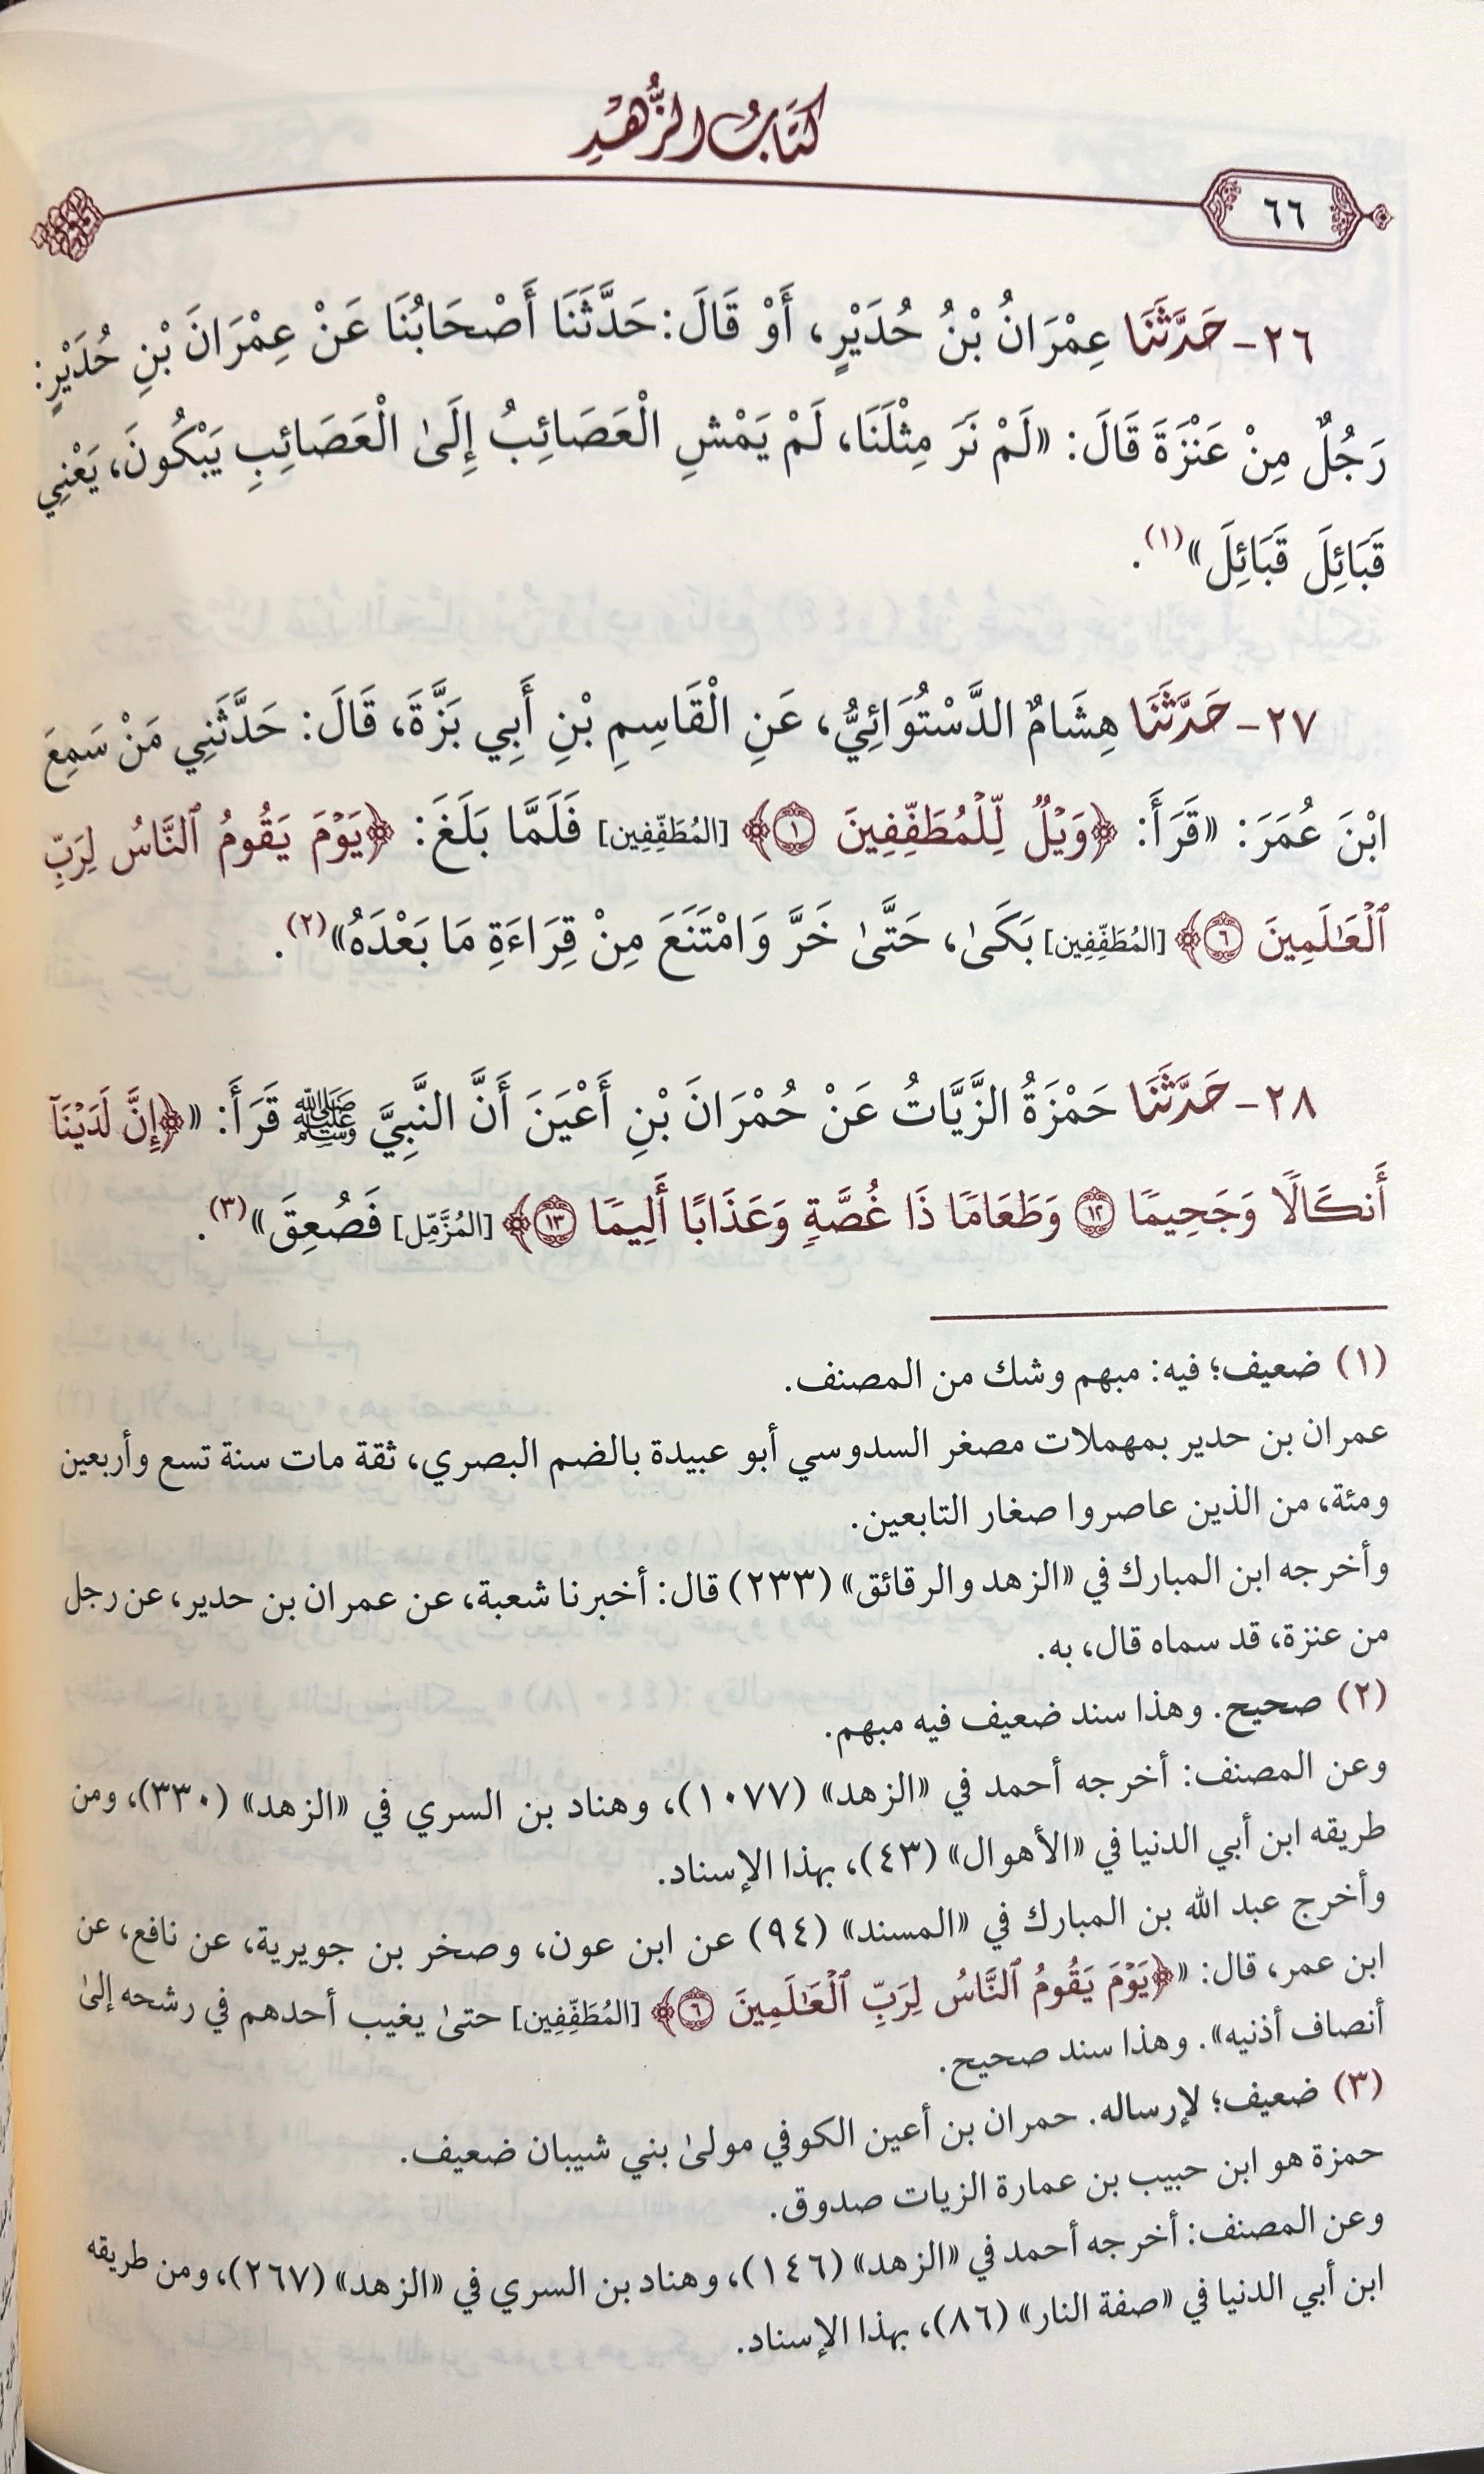 كِتَابُ الزُّهْدِ
٦٦
٢٦- حَدَّثَنَا عِمْرَانُ بْنُ حُدَيْرٍ، أَوْ قَالَ: حَدَّثَنَا أَصْحَابُنَا عَنْ عِمْرَانَ بْنِ حُدَيْرٍ:
رَجُلٌ مِنْ عَنْزَةَ قَالَ: «لَمْ نَرَ مِثْلَنَا، لَمْ يَمْشِ الْعَصَائِبُ إِلَىٰ الْعَصَائِبِ يَبْكُونَ، يَعْنِي
قَبَائِلَ قَبَائِلَ»(١).
٢٧- حَدَّثَنَا هِشَامٌ الدَّسْتُوَائِيُّ، عَنِ الْقَاسِمِ بْنِ أَبِي بَزَّةَ، قَالَ: حَدَّثَنِي مَنْ سَمِعَ
ابْنَ عُمَرَ: «قَرَأَ: ﴿وَيْلٌ لِّلْمُطَفِّفِينَ ١﴾ [المُطَفِّفِين] فَلَمَّا بَلَغَ: ﴿يَوْمَ يَقُومُ ٱلنَّاسُ لِرَبِّ
ٱلْعَـٰلَمِينَ ٦﴾ [المُطَفِّفِين] بَكَىٰ، حَتَّىٰ خَرَّ وَامْتَنَعَ مِنْ قِرَاءَةِ مَا بَعْدَهُ»(٢).
٢٨- حَدَّثَنَا حَمْزَةُ الزَّيَّاتُ عَنْ حُمْرَانَ بْنِ أَعْيَنَ أَنَّ النَّبِيَّ ﷺ قَرَأَ: «﴿إِنَّ لَدَيْنَآ
أَنكَالًا وَجَحِيمًا ١٢ وَطَعَامًا ذَا غُصَّةٍ وَعَذَابًا أَلِيمًا ١٣﴾ [المُزَّمِّل] فَصُعِقَ»(٣).
(١) ضعيف؛ فيه: مبهم وشك من المصنف.
عمران بن حدير بمهملات مصغر السدوسي أبو عبيدة بالضم البصري، ثقة مات سنة تسع وأربعين
ومئة، من الذين عاصروا صغار التابعين.
وأخرجه ابن المبارك في «الزهد والرقائق» (٢٣٣) قال: أخبرنا شعبة، عن عمران بن حدير، عن رجل
من عنزة، قد سماه قال، به.
(٢) صحيح. وهذا سند ضعيف فيه مبهم.
وعن المصنف: أخرجه أحمد في «الزهد» (١٠٧٧)، وهناد بن السري في «الزهد» (٣٣٠)، ومن
طريقه ابن أبي الدنيا في «الأهوال» (٤٣)، بهذا الإسناد.
وأخرج عبد الله بن المبارك في «المسند» (٩٤) عن ابن عون، وصخر بن جويرية، عن نافع، عن
ابن عمر، قال: «﴿يَوْمَ يَقُومُ ٱلنَّاسُ لِرَبِّ ٱلْعَـٰلَمِينَ ٦﴾ [المُطَفِّفِين] حتىٰ يغيب أحدهم في رشحه إلىٰ
أنصاف أذنيه». وهذا سند صحيح.
(٣) ضعيف؛ لإرساله. حمران بن أعين الكوفي مولىٰ بني شيبان ضعيف.
حمزة هو ابن حبيب بن عمارة الزيات صدوق.
وعن المصنف: أخرجه أحمد في «الزهد» (١٤٦)، وهناد بن السري في «الزهد» (٢٦٧)، ومن طريقه
ابن أبي الدنيا في «صفة النار» (٨٦)، بهذا الإسناد.